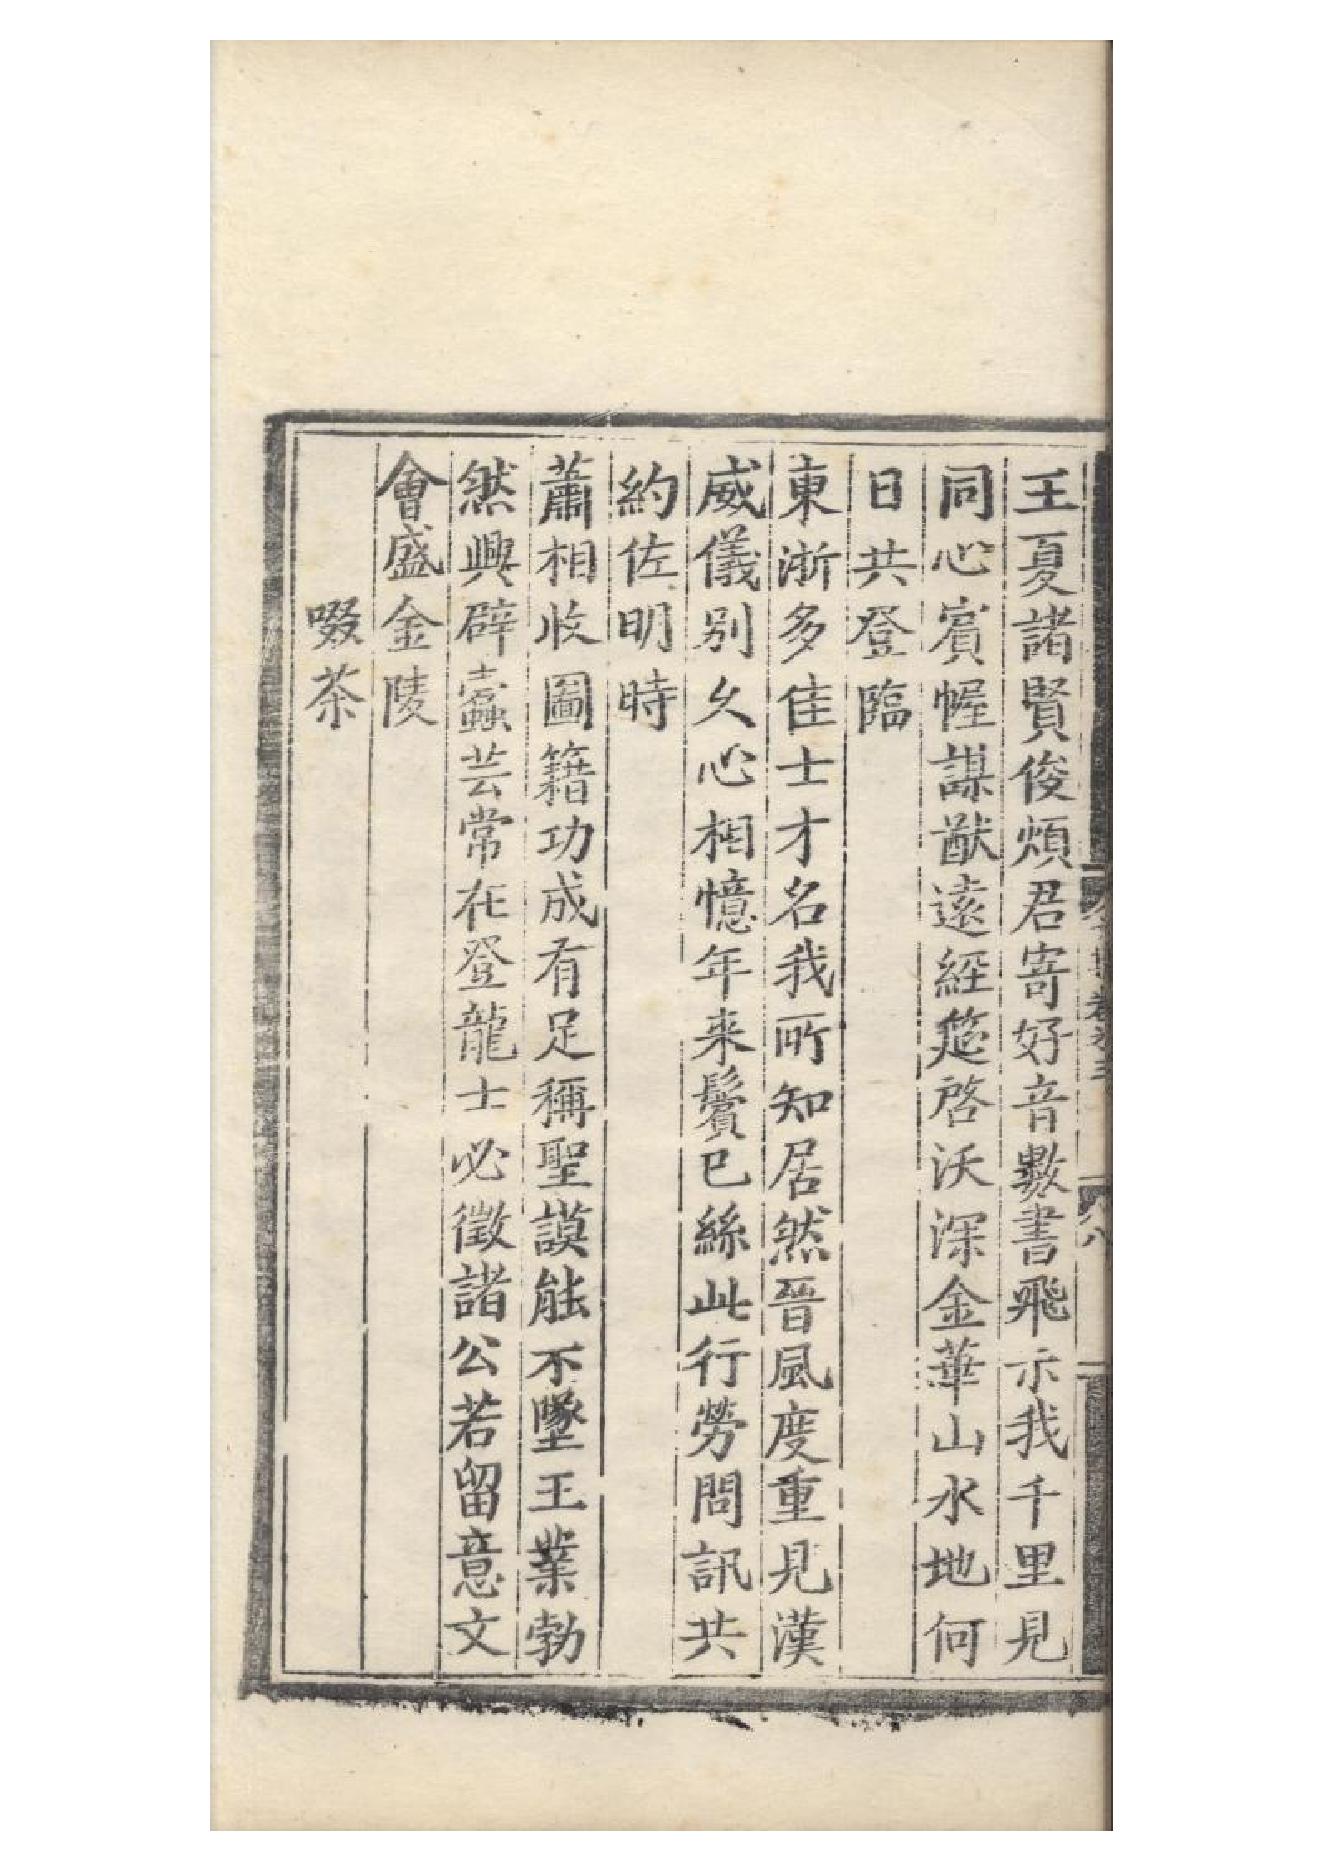 王夏諸賢俊煩君寄好音數書飛示我千里見
同心賓幄謀猷遠經筵啓沃深金華山水地何
日共登臨
東浙多佳士才名我所知居然晉風度重見漢
威儀别久心相憶年来鬢已絲此行勞問訊共
約佐明時
蕭相收圖籍功成有足稱聖謨能不墜王業勃
然興辟蠹芸常在登龍士必徵諸公若留意文
會盛金陵
啜茶